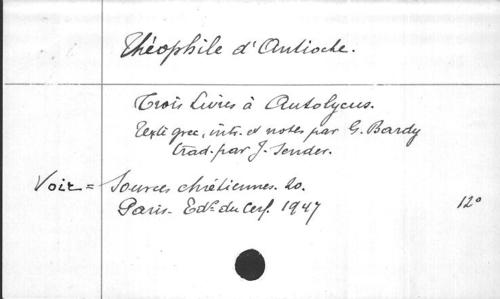 Théophile d'Antioche.
Trois Livres à Autolycus.
Texte grec, intr. et notes par G. Bardy
trad. par J. Sender.
Voir = Sources chrétiennes. 20.
Paris. Edr. du Cerf. 1947 12°